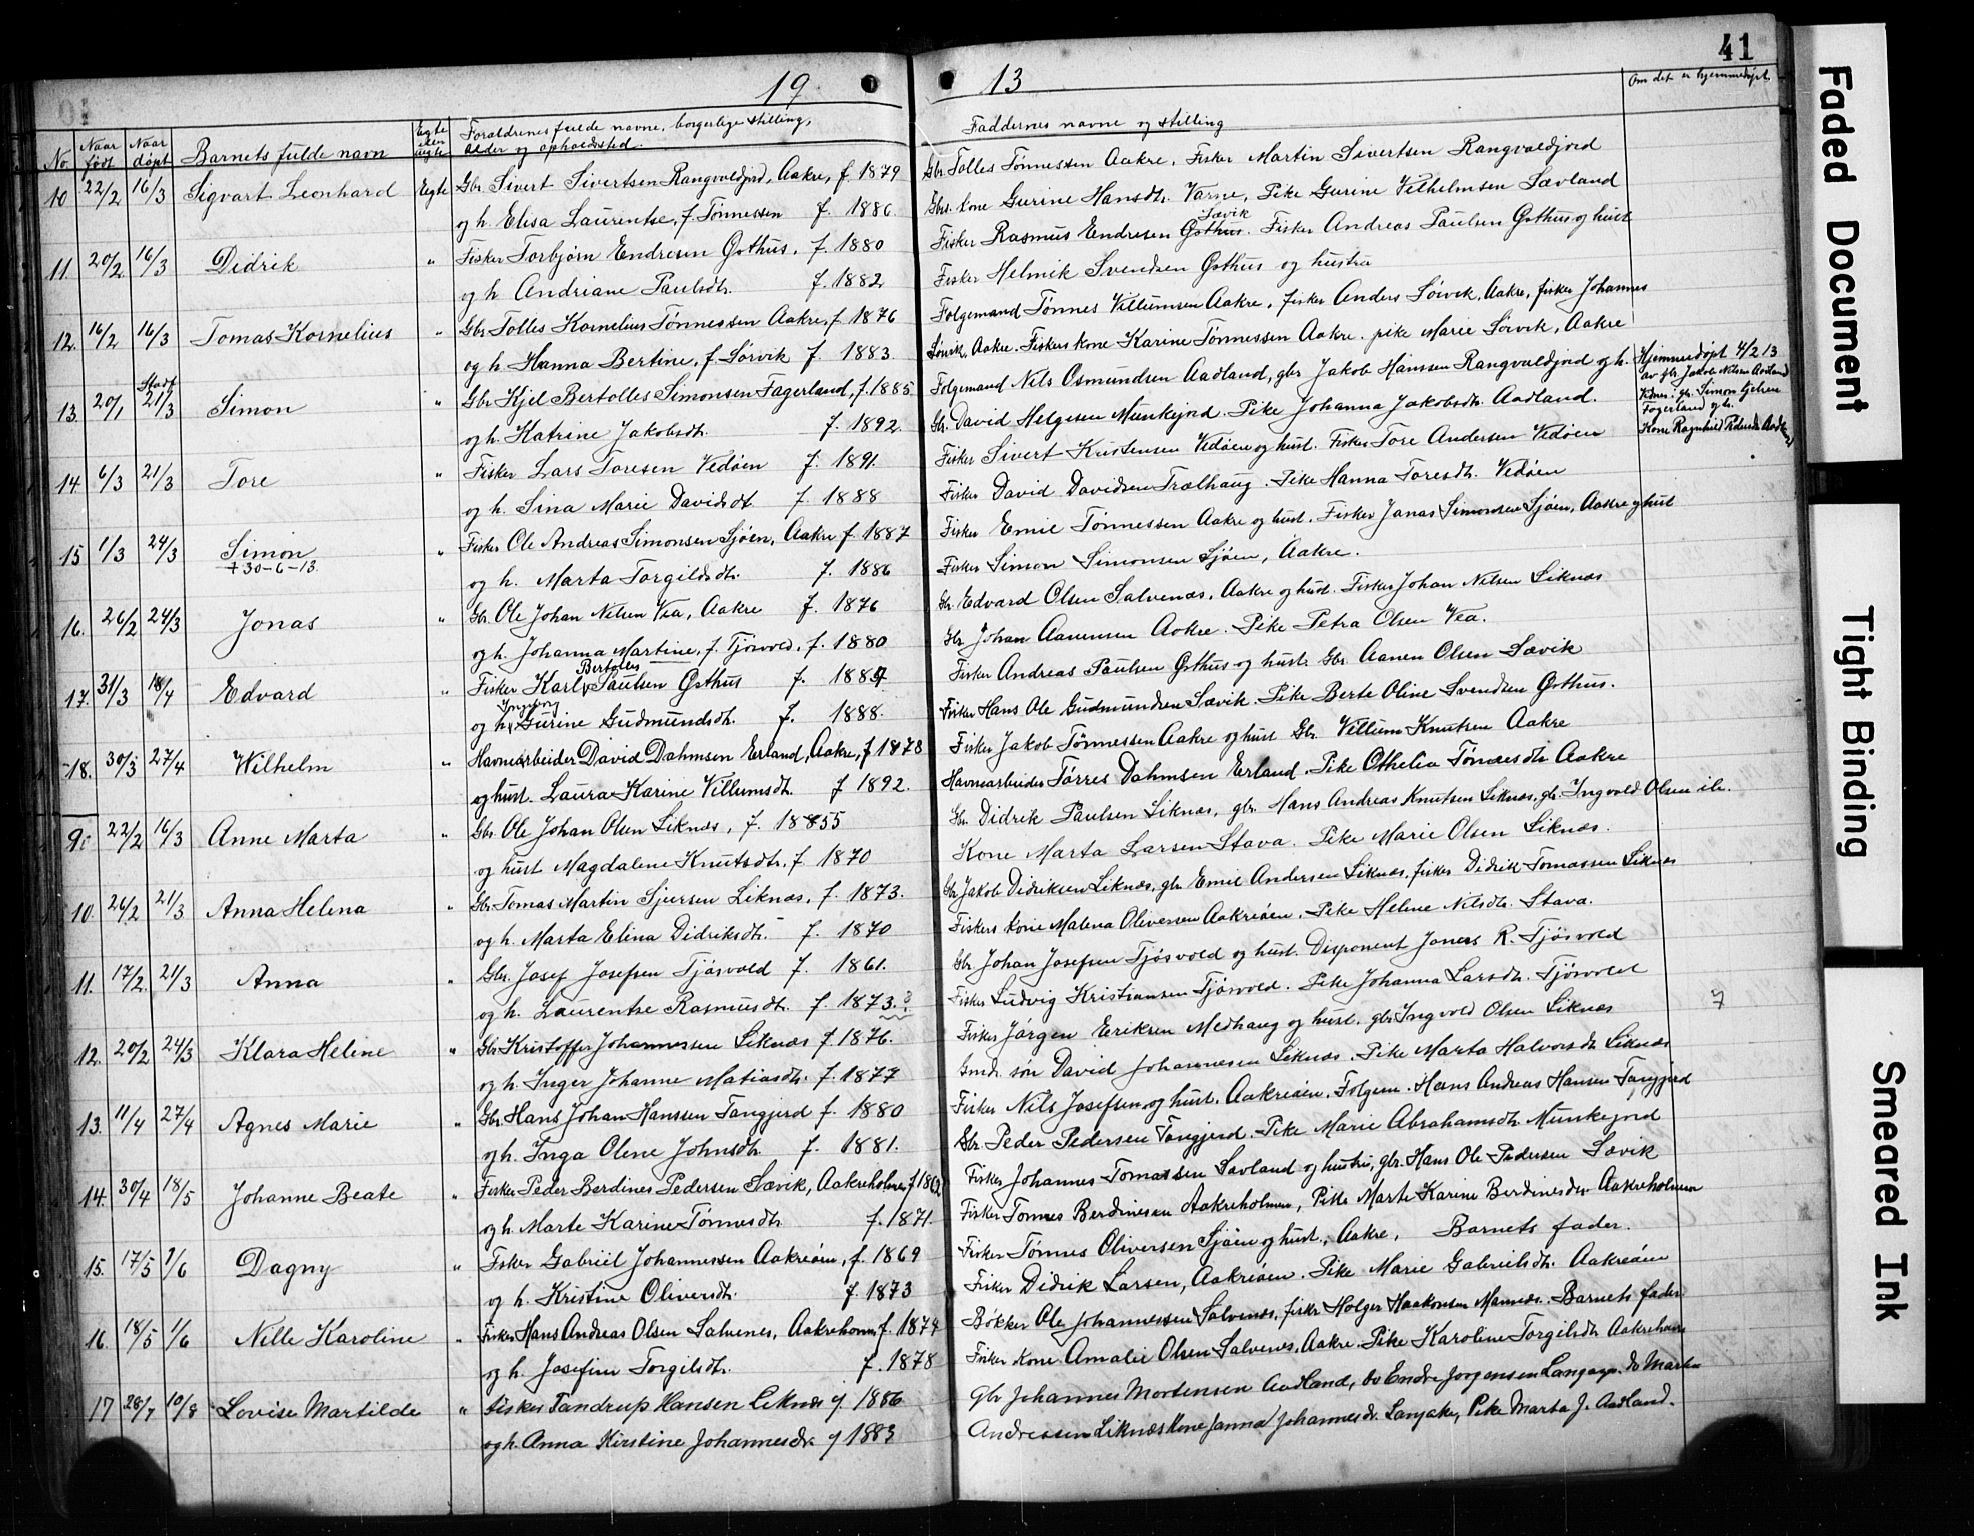 41
19 13
No.
Naar født
Naar døpt
Barnets fulde navn
Egte eller uegte
Forældrenes fulde navne, borgerlige stilling,
alder og opholdssted.
Faddernes navne og stilling
Om det er hjemmedøpt.
10 22/2 16/3 Sigvart Leonhard Egte Gbr. Sivert Sivertsen Rangvaldjord, Aakre, f. 1879 Gbr. Tolles Tønnessen Aakre, Fisker Martin Sivertsen Rangvaldjord
og h. Elisa Laurentse, f. Tønnessen f. 1886 Gbrs. kone Gurine Hansdtr. Varne, Pike Gurine Vilhelmsen Sævland
11. 20/2 16/3 Didrik " Fisker Torbjørn Endresen Østhus, f. 1880 Fisker Rasmus Endresen Østhus Sævik. Fisker Andreas Paulsen Østhus og hust
og h. Andriane Paulsdtr. f. 1882 Fisker Helmik Svendsen Østhus og hustru
12. 16/2 16/3 Tomas Kornelius " Gbr. Tolles Kornelius Tønnessen Aakre, f. 1876 Følgemand Tønnes Villumsen Aakre, fisker Anders Sørvik, Aakre, fisker Johannes
og h. Hanna Bertine, f. Sørvik f. 1883 Sørvik, Aakre. Fiskers kone Karine Tønnessen Aakre. pike Marie Sørvik, Aakre
13. 20/1 Stadf. 21/3 Simon " Gbr. Kjel Bertolles Simonsen Fagerland, f. 1885 Følgemand Nils Osmundsen Aadland, gbr. Jakob Hansen Rangvaldjord og h. Hjemmedøpt 4/2 13
av gbr. Jakob Nilsen Aadland
Vidner: gbr. Simon
Fagerland og h.
Kone Ragnhild Pedersdtr. Aadland
og h. Katrine Jakobsdtr. f. 1892 Gbr. David Helgesen Munkejord. Pike Johanna Jakobsdtr. Aadland.
14. 6/3 21/3 Tore " Fisker Lars Toresen Vedøen f. 1891. Fisker Sivert Kristensen Vedøen og hust. Fisker Tore Andersen Vedøen
og h. Sina Marie Davidsdt f. 1888 Fisker David Davidsen Trælhaug. Pike Hanna Toresdtr. Vedøen
15 1/3 24/3 Simon " Fisker Ole Andreas Simonsen Sjøen, Aakre f. 1887 Fisker Emil Tønnessen Aakre og hust. Fisker Janas Simonsen Sjøen, Aakre og hust
+ 30-6-13.
og h. Marta Torgilsdtr. f. 1886 Fisker Simon Simonsen Sjøen, Aakre.
16. 26/2 24/3 Jonas " Gbr. Ole Johan Nilsen Vea, Aakre f. 1876 Gbr. Edvard Olsen Salvenæs, Aakre og hust. Fisker Johan Nilsen Liknæs
og h. Johanna Martine, f. Tjøsvold, f. 1880 Gbr. Johan Aanensen Aakre. Pike Petra Olsen Vea.
17. 31/3 18/4 Edvard " Fisker Karl Bertoles Paulsen Østhus f. 1884 Fisker Andreas Paulsen Østhus og hust. Gbr. Aanen Olsen Sævik
og h. Ingeborg Gurine Gudmundsdtr. f. 1888. Fisker Hans Ole Gudmundsen Sævik. Pike Berte Oline Svendsen Østhus.
18. 30/3 27/4 Wilhelm " Havnearbeider David Dahmsen Erland, Aakre, f 1878 Fisker Jakob Tønnessen Aakre og hust Gbr. Villum Knutsen Aakre
og hust. Laura Karine Villumsdt. f 1892. Havnearbeider Tørres Dahmsen Erland. Pike Othelia Tønnesdtr. Aakre
9. 22/2 16/3 Anne Marta " Gbr. Ole Johan Olsen Liknæs, f. 1855 Gbr. Didrik Paulsen Liknæs, gbr. Hans Andreas Knutsen Liknæs, gbr. Ingvald Olsen ib.
og hust Magdalene Knutsdtr. f 1870 Kone Marta Larsen Stava. Pike Marie Olsen Liknæs.
10. 26/2 21/3 Anna Helena " Gbr. Tomas Martin Sjursen Liknæs, f. 1873. Gbr. Jakob Didriksen Liknæs, gbr. Emil Andersen Liknæs, fisker Didrik Tomassen Liknæs
og h. Marta Elina Didriksdtr. f. 1870 Fiskers kone Malena Oliversen Aakreøen. Pike Helene Nilsdtr. Stava.
11. 17/2. 21/3 Anna " Gbr. Josef Josefsen Tjøsvold f. 1861. Gbr Johan Josefsen Tjøsvold og hust. Disponent Jonas R. Tjøsvold
og h. Laurentse Rasmusdt. f. 1873.? Fisker Ludvig Kristiansen Tjøsvold. Pike Johanna Larsdtr. Tjøsvold
12. 20/2 24/3 Klara Heline " Gbr. Kristoffer Johannessen Liknæs f 1876. Fisker Jørgen Eriksen Medhaug og hust. gbr Ingvald Olsen Liknæs
og h. Inger Johanne Matiasdtr. f. 1877 Gmd. søn David Johannesen Liknæs. Pike Marta Halvorsdtr Liknæs
13. 11/4 27/4 Agnes Marie " Gbr. Hans Johan Hanssen Tangjerd f. 1880 Fisker Nils Josefsen og hust. Aakreøen. Følgem. Hans Andreas Hansen Tangjerd
og h. Inga Olene Johnsdtr. f. 1881. Gbr. Peder Pedersen Tangjerd. Pike Marie Abrahamsdtr. Munkejord
14. 30/4 18/5 Johanne Beate " Fisker Peder Berdines Pedersen Sævik, Aakreholmen, f 1862 Fisker Johannes Tomassen Sævland og hustru, gbr. Hans Ole Pedersen Sævik
og h. Marte Karine Tønnesdtr. f. 1871. Fisker Tønnes Berdinesen Aakreholmen, Pike Marte Karine Berdinesdtr Aakreholmen
15. 17/5 1/6 Dagny " Fisker Gabriel Johannessen Aakreøen, f. 1869 Fisker Tønnes Oliversen Sjøen og hust., Aakre, Barnets fader.
og h. Kristine Oliversdtr. f. 1873 Fisker Didrik Larsen, Aakreøen. Pike Marie Gabrielsdtr. Aakreøen
16. 18/5 1/6 Nille Karoline " Fisker Hans Andreas Olsen Salvenes, Aakrehavn, f. 1874 Bøkker Ole Johannessen Salvenes, fisker Holger Haakonsen Mannes. Barnets fader
og h. Josefine Torgilsdtr. f. 1878 Fisker kone Amalie Olsen Salvenes, Aakre. Pike Karoline Torgilsdtr Aakrehavn
17 28/7 10/8 Lovise Martilde " fisker Tandrup Hansen Liknæs f. 1886 Gbr Johannes Mortensen Aadland, do Endre Jørgensen Langaker. do Martin
og h. Anna Kirstine Johannesdtr f 1883 Andreassen Liknæs Kone Janna Johannesdtr. Langaker, Pike Marta J. Aadland.
7
Faded Document
Tight Binding
Smeared Ink